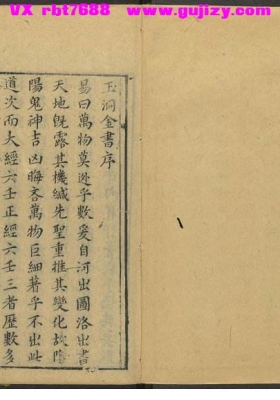 VX rbt7688 www.gujizy.com
玉洞金書序
易曰萬物莫逃乎數爰自河出圖洛出書
天地旣露其機緘先聖重推其變化故陰
陽鬼神吉凶晦吝萬物巨細著乎不出此
道次而大經六壬正經六壬三者歷數多